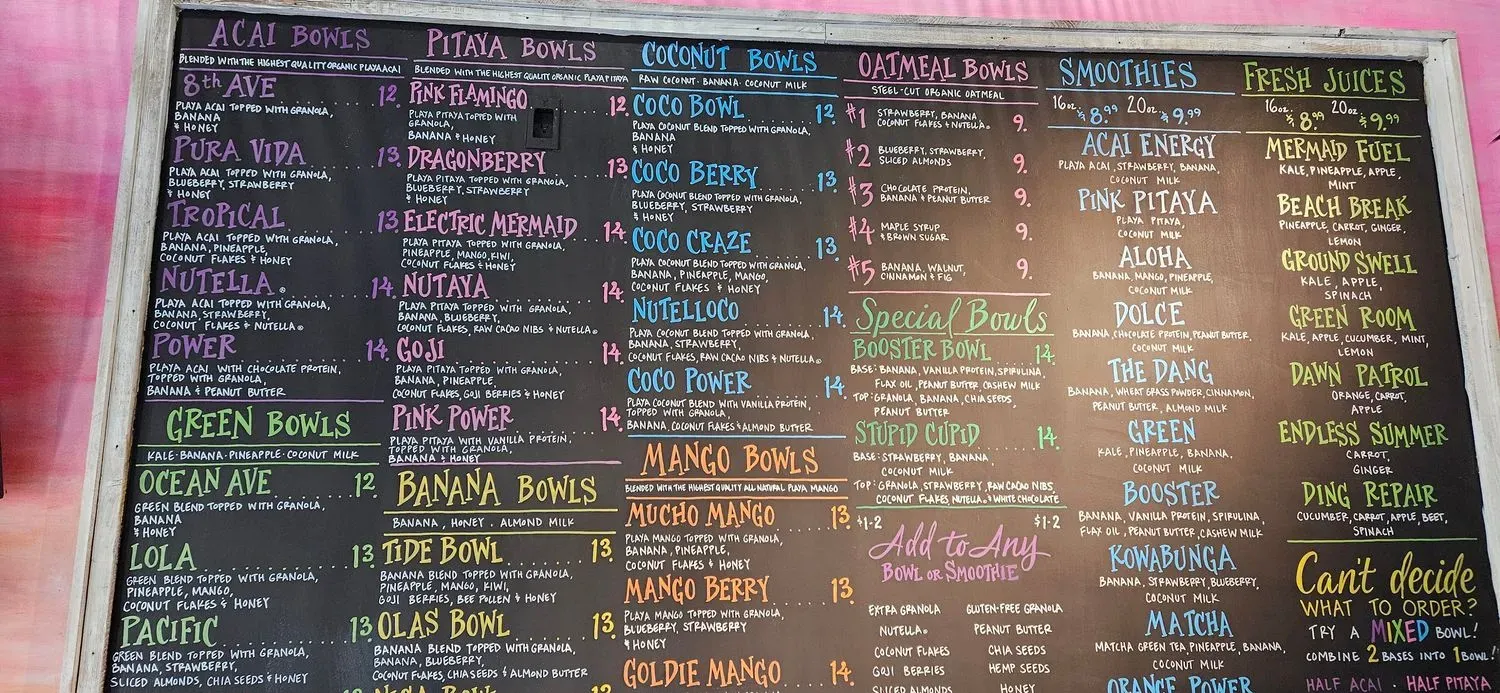 ACAI BOWLS
BLENDED WITH THE HIGHEST QUALITY ORGANIC PLAYA ACAI
8th AVE 12.
PLAYA ACAI TOPPED WITH GRANOLA,
BANANA
& HONEY
PURA VIDA 13.
PLAYA ACAI TOPPED WITH GRANOLA,
BLUEBERRY, STRAWBERRY
& HONEY
TROPICAL 13.
PLAYA ACAI TOPPED WITH GRANOLA,
BANANA, PINEAPPLE,
COCONUT FLAKES & HONEY
NUTELLA® 14.
PLAYA ACAI TOPPED WITH GRANOLA,
BANANA, STRAWBERRY,
COCONUT FLAKES & NUTELLA®
POWER 14.
PLAYA ACAI WITH CHOCOLATE PROTEIN,
TOPPED WITH GRANOLA,
BANANA & PEANUT BUTTER
GREEN BOWLS
KALE · BANANA · PINEAPPLE · COCONUT MILK
OCEAN AVE 12.
GREEN BLEND TOPPED WITH GRANOLA,
BANANA
& HONEY
LOLA 13.
GREEN BLEND TOPPED WITH GRANOLA,
PINEAPPLE, MANGO,
COCONUT FLAKES & HONEY
PACIFIC 13.
GREEN BLEND TOPPED WITH GRANOLA,
BANANA, STRAWBERRY,
SLICED ALMONDS, CHIA SEEDS & HONEY
PITAYA BOWLS
BLENDED WITH THE HIGHEST QUALITY ORGANIC PLAYA PITAYA
PINK FLAMINGO 12.
PLAYA PITAYA TOPPED WITH
GRANOLA,
BANANA & HONEY
DRAGONBERRY 13.
PLAYA PITAYA TOPPED WITH GRANOLA,
BLUEBERRY, STRAWBERRY
& HONEY
ELECTRIC MERMAID 14.
PLAYA PITAYA TOPPED WITH GRANOLA,
PINEAPPLE, MANGO, KIWI,
COCONUT FLAKES & HONEY
NUTAYA 14.
PLAYA PITAYA TOPPED WITH GRANOLA,
BANANA, BLUEBERRY,
COCONUT FLAKES, RAW CACAO NIBS & NUTELLA®
GOJI 14.
PLAYA PITAYA TOPPED WITH GRANOLA,
BANANA, PINEAPPLE,
COCONUT FLAKES, GOJI BERRIES & HONEY
PINK POWER 14.
PLAYA PITAYA WITH VANILLA PROTEIN,
TOPPED WITH GRANOLA,
BANANA & HONEY
BANANA BOWLS
BANANA, HONEY · ALMOND MILK
TIDE BOWL 13.
BANANA BLEND TOPPED WITH GRANOLA,
PINEAPPLE, MANGO, KIWI,
GOJI BERRIES, BEE POLLEN & HONEY
OLAS BOWL 13.
BANANA BLEND TOPPED WITH GRANOLA,
BANANA, BLUEBERRY,
COCONUT FLAKES, CHIA SEEDS & ALMOND BUTTER
COCONUT BOWLS
RAW COCONUT · BANANA · COCONUT MILK
COCO BOWL 12.
PLAYA COCONUT BLEND TOPPED WITH GRANOLA,
BANANA
& HONEY
COCO BERRY 13.
PLAYA COCONUT BLEND TOPPED WITH GRANOLA,
BLUEBERRY, STRAWBERRY
& HONEY
COCO CRAZE 13.
PLAYA COCONUT BLEND TOPPED WITH GRANOLA,
BANANA, PINEAPPLE, MANGO,
COCONUT FLAKES & HONEY
NUTELLOCO 14.
PLAYA COCONUT BLEND TOPPED WITH GRANOLA,
BANANA, STRAWBERRY,
COCONUT FLAKES, RAW CACAO NIBS & NUTELLA®
COCO POWER 14.
PLAYA COCONUT BLEND WITH VANILLA PROTEIN,
TOPPED WITH GRANOLA,
BANANA, COCONUT FLAKES & ALMOND BUTTER
MANGO BOWLS
BLENDED WITH THE HIGHEST QUALITY ALL NATURAL PLAYA MANGO
MUCHO MANGO 13.
PLAYA MANGO TOPPED WITH GRANOLA,
BANANA, PINEAPPLE,
COCONUT FLAKES & HONEY
MANGO BERRY 13.
PLAYA MANGO TOPPED WITH GRANOLA,
BLUEBERRY, STRAWBERRY
& HONEY
GOLDIE MANGO 14.
OATMEAL BOWLS
STEEL-CUT ORGANIC OATMEAL
#1 STRAWBERRY, BANANA 9.
COCONUT FLAKES & NUTELLA®
#2 BLUEBERRY, STRAWBERRY, 9.
SLICED ALMONDS
#3 CHOCOLATE PROTEIN, 9.
BANANA & PEANUT BUTTER
#4 MAPLE SYRUP 9.
& BROWN SUGAR
#5 BANANA, WALNUT, 9.
CINNAMON & FIG
Special Bowls
BOOSTER BOWL 14.
BASE: BANANA, VANILLA PROTEIN, SPIRULINA,
FLAX OIL, PEANUT BUTTER, CASHEW MILK
TOP: GRANOLA, BANANA, CHIA SEEDS,
PEANUT BUTTER
STUPID CUPID 14.
BASE: STRAWBERRY, BANANA,
COCONUT MILK
TOP: GRANOLA, STRAWBERRY, RAW CACAO NIBS,
COCONUT FLAKES, NUTELLA® & WHITE CHOCOLATE
$1-2 $1-2
Add to Any
BOWL OR SMOOTHIE
EXTRA GRANOLA GLUTEN-FREE GRANOLA
NUTELLA® PEANUT BUTTER
COCONUT FLAKES CHIA SEEDS
GOJI BERRIES HEMP SEEDS
SLICED ALMONDS HONEY
SMOOTHIES
16oz. $8.99 20oz. $9.99
ACAI ENERGY
PLAYA ACAI, STRAWBERRY, BANANA,
COCONUT MILK
PINK PITAYA
PLAYA PITAYA,
COCONUT MILK
ALOHA
BANANA, MANGO, PINEAPPLE,
COCONUT MILK
DOLCE
BANANA, CHOCOLATE PROTEIN, PEANUT BUTTER,
COCONUT MILK
THE DANG
BANANA, WHEAT GRASS POWDER, CINNAMON,
PEANUT BUTTER, ALMOND MILK
GREEN
KALE, PINEAPPLE, BANANA,
COCONUT MILK
BOOSTER
BANANA, VANILLA PROTEIN, SPIRULINA,
FLAX OIL, PEANUT BUTTER, CASHEW MILK
KOWABUNGA
BANANA, STRAWBERRY, BLUEBERRY,
COCONUT MILK
MATCHA
MATCHA GREEN TEA, PINEAPPLE, BANANA,
COCONUT MILK
ORANGE POWER
FRESH JUICES
16oz. $8.99 20oz. $9.99
MERMAID FUEL
KALE, PINEAPPLE, APPLE,
MINT
BEACH BREAK
PINEAPPLE, CARROT, GINGER,
LEMON
GROUND SWELL
KALE, APPLE,
SPINACH
GREEN ROOM
KALE, APPLE, CUCUMBER, MINT,
LEMON
DAWN PATROL
ORANGE, CARROT,
APPLE
ENDLESS SUMMER
CARROT,
GINGER
DING REPAIR
CUCUMBER, CARROT, APPLE, BEET,
SPINACH
Can't decide
WHAT TO ORDER?
TRY A MIXED BOWL!
COMBINE 2 BASES INTO 1 BOWL!
HALF ACAI · HALF PITAYA